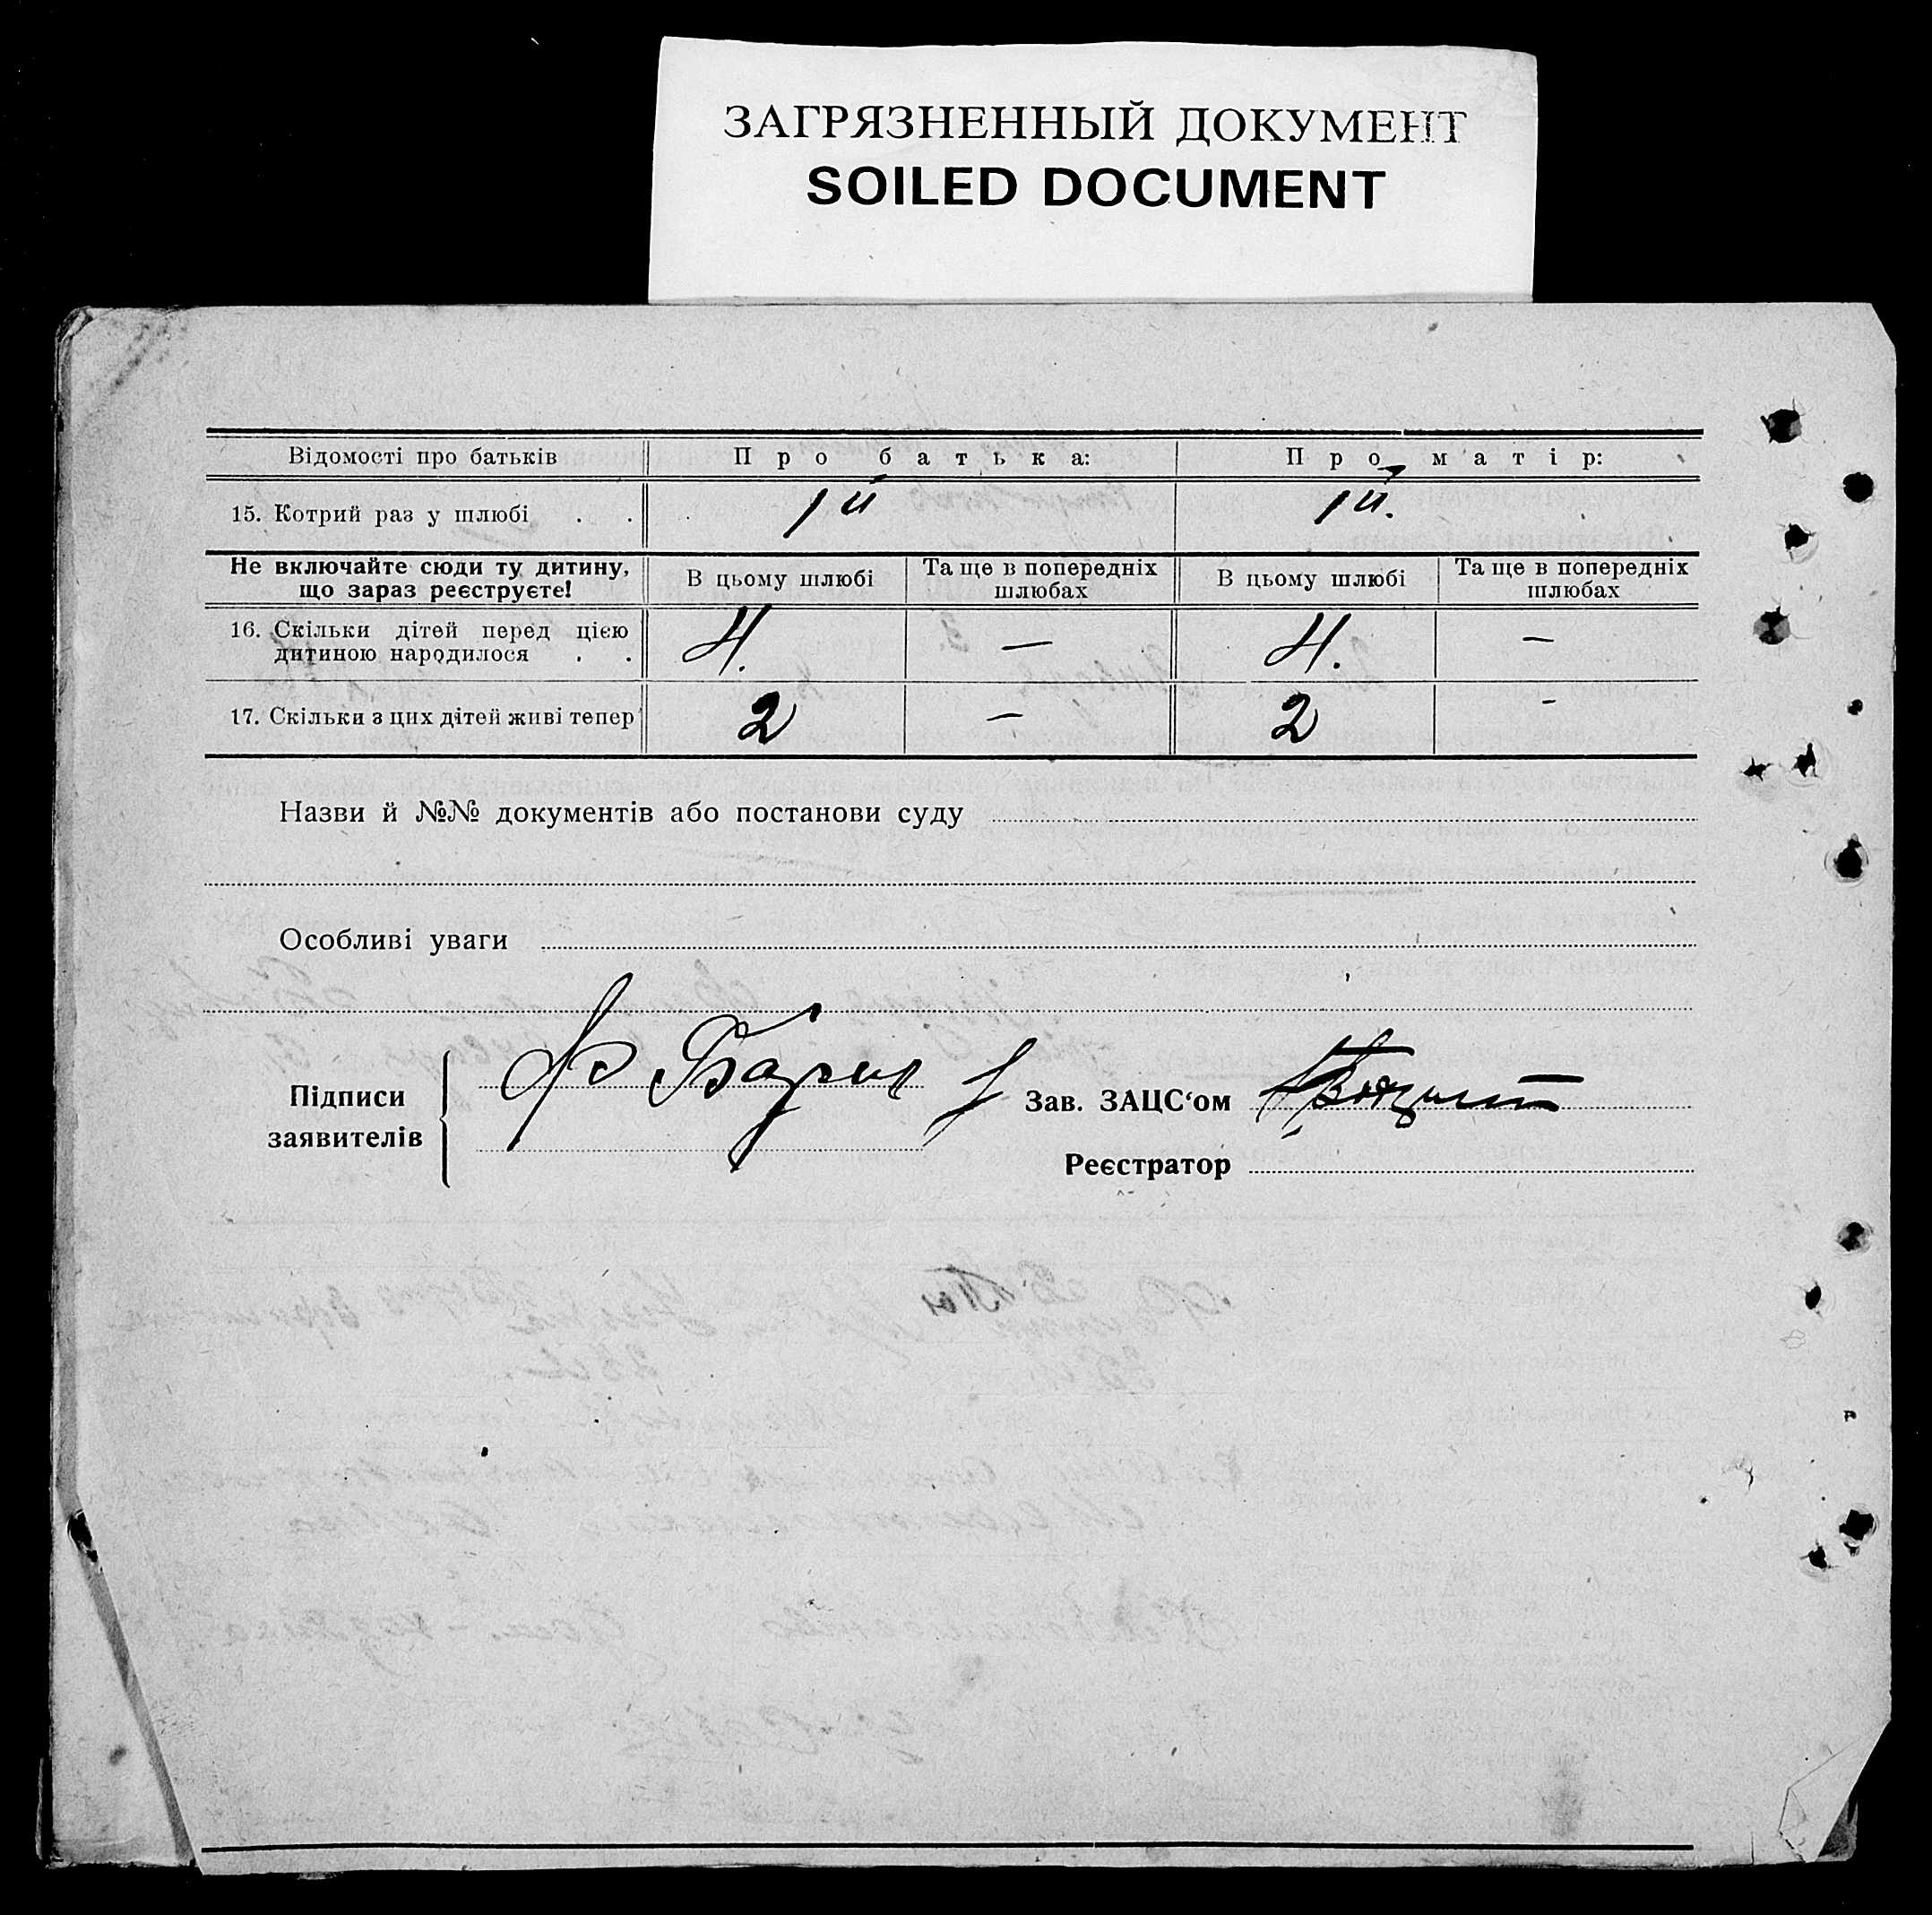 ЗАГРЯЗНЕННЫЙ ДОКУМЕНТ
SOILED DOCUMENT
Відомості про батьків Про батька: Про матір:
15. Котрий раз у шлюбі . . 1й 1й.
Не включайте сюди ту дитину, що зараз реєструєте! В цьому шлюбі Та ще в попередніх шлюбах В цьому шлюбі Та ще в попередніх шлюбах
16. Скільки дітей перед цією
дитиною народилося . . 4. — 4. —
17. Скільки з цих дітей живі тепер 2 — 2 -
Назви й №№ документів або постанови суду
Особливі уваги
Підписи
заявителів
Зав. ЗАЦС‘ом
Реєстратор